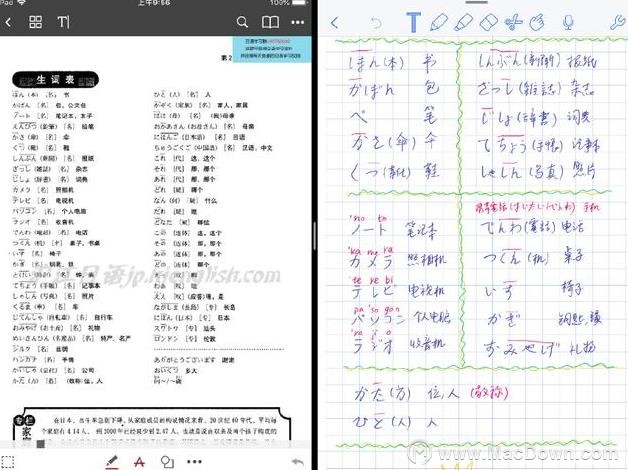 iPad 上午9:56 100%
生词表
ほん（本）［名］书
かばん［名］包，公文包
ノート［名］笔记本，本子
えんぴつ（鉛筆）［名］铅笔
かさ（傘）［名］伞
くつ（靴）［名］鞋
しんぶん（新聞）［名］报纸
ざっし（雑誌）［名］杂志
じしょ（辞書）［名］词典
カメラ［名］照相机
テレビ［名］电视机
パソコン［名］个人电脑
ラジオ［名］收音机
でんわ（電話）［名］电话
つくえ（机）［名］桌子，书桌
いす［名］椅子
かぎ［名］钥匙，锁
とけい（時計）［名］钟，表
てちょう（手帳）［名］记事本
しゃしん（写真）［名］照片
くるま（車）［名］车
じてんしゃ（自転車）［名］自行车
おみやげ（お土産）［名］礼物
めいさんひん（名産品）［名］特产，名产
シルク［名］丝绸
ハンカチ［名］手绢
かいしゃ（会社）［名］公司
かた（方）［名］（敬称）位，人
ひと（人）［名］人
かぞく（家族）［名］家人，家属
はは（母）［名］（我）母亲
おかあさん（お母さん）［名］母亲
にほんご（日本語）［名］日语
ちゅうごくご（中国語）［名］汉语，中文
これ［代］这，这个
それ［代］那，那个
あれ［代］那，那个
どれ［疑］哪个
なん（何）［疑］什么
だれ［疑］谁
どなた［疑］哪位
この［连体］这，这个
その［连体］那，那个
あの［连体］那，那个
えっ［叹］啊
わあ［叹］哇
ええ［叹］（应答）嗯，是
［专］长岛
にほん（日本）［专］日本
スワトウ［专］汕头
ロンドン［专］伦敦
ありがとうございます 谢谢
おいくつ 多大
何～／～歳
专栏
在日本，当生率急剧下降，
ほん（本） 书
かばん 包
ペン 笔
かさ（伞） 伞
くつ 鞋
しんぶん（新聞） 报纸
ざっし（雑誌） 杂志
じしょ（辞書） 词典
てちょう（手帳） 记事本
しゃしん（写真） 照片
no to
ノート 笔记本
ka me ra
カメラ 照相机
te re bi
テレビ 电视机
pa so gon
パソコン 个人电脑
ra ji o
ラジオ 收音机
携帯電話（けいたいでんわ） 手机
でんわ（電話） 电话
つくえ（机） 桌子
いす 椅子
かぎ 钥匙，锁
おみやげ 礼物
かた（方） 位，人 （敬称）
ひと（人） 人
www.MacDown.com